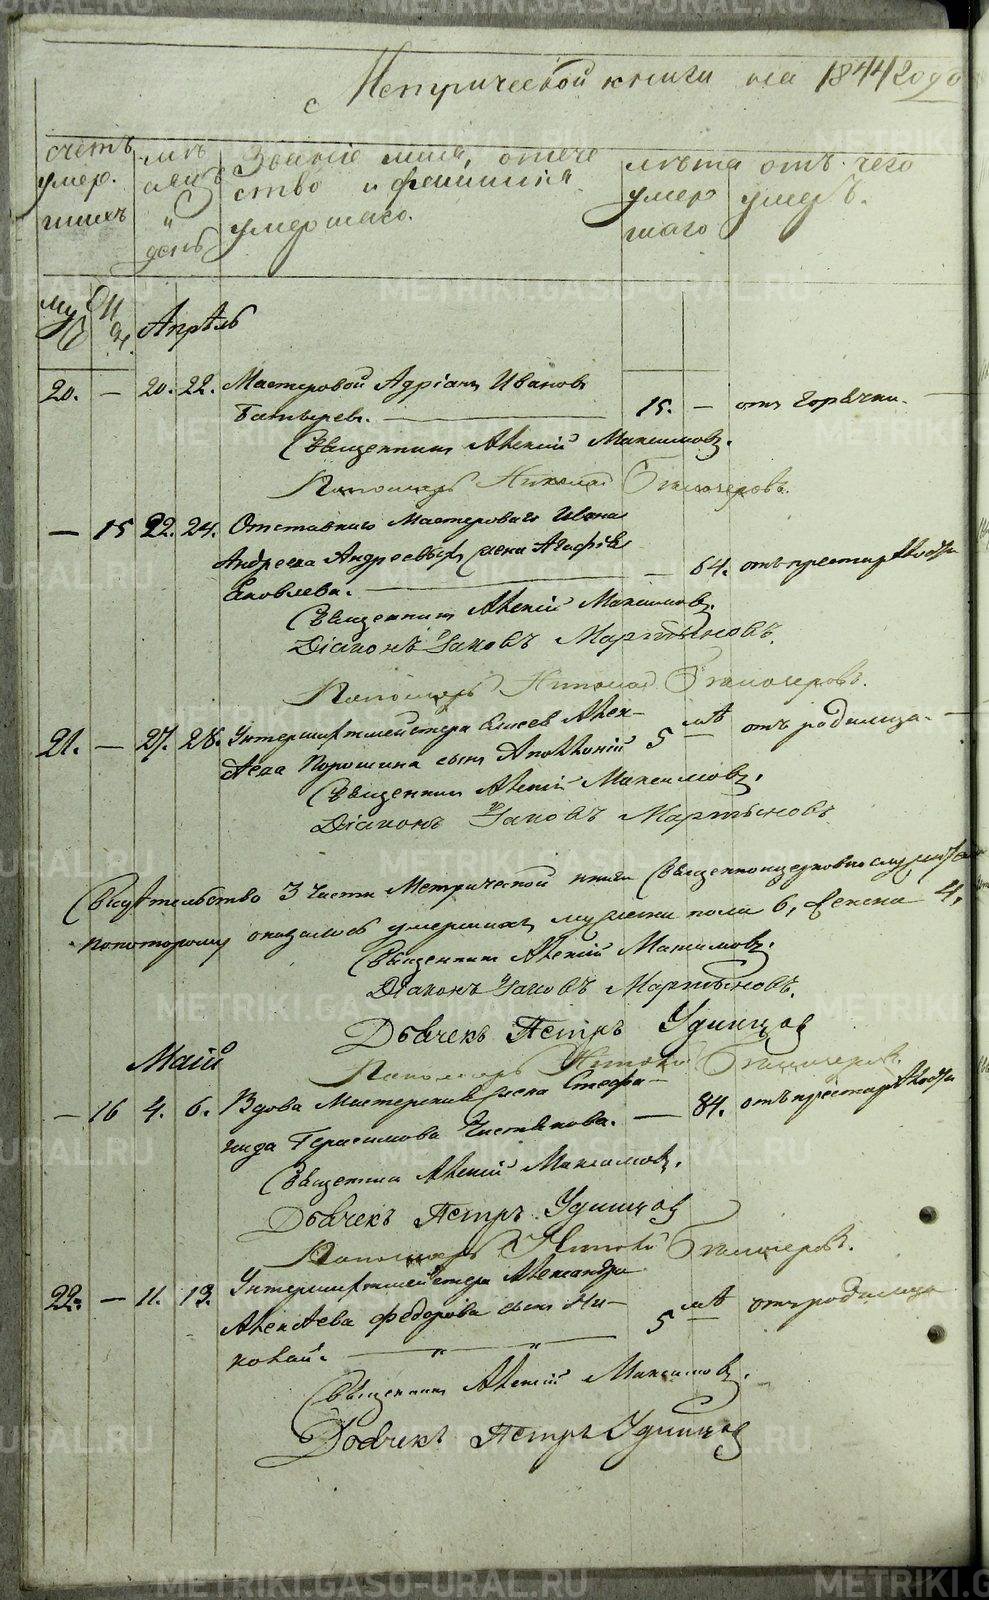 с Метрической книги на 1844 годъ
счетъ умер. шихъ
мѣсяцъ и день
Званіе имя, отече
ство и фамилія
умершаго.
лѣта умер шаго
отъ чего умеръ.
му Апрѣль
20. — 20. 22. Мастеровой Адріанъ Ивановъ
Батыревъ. — 15. — отъ горячки.
Священникъ Алексій Максимовъ.
Пономарь Николай
— 15 22. 24. Отставнаго Мастероваго Ивана
Андреева Андреевыхъ жена Агафія
Яковлева. — 64. отъ престарѣлости
Священникъ Алексій Максимовъ.
Діаконъ Іаковъ Мартыновъ.
Пономарь Николай
21. — 27. 28. Унтершихтмейстера Елисея Алек-
сѣева Порошина сынъ Аполлоній 5 лѣ отъ родимца.
Священникъ Алексій Максимовъ.
Діаконъ Іаковъ Мартыновъ
Свидѣтельство 3 части Метрической книги Священноцерковнослужители
покоторому оказалось умершихъ мужеска пола 6, женска 4.
Священникъ Алексій Максимовъ.
Діаконъ Іаковъ Мартыновъ.
Дьячекъ Петръ Удинцов
Пономарь Николай
Маій
— 16 4. 6. Вдова Мастерская жена Стефа-
нида Герасимова Чистякова. — 84. отъ престарѣлости
Священникъ Алексій Максимовъ.
Дьячекъ Петръ Удинцов
Пономарь Николай
22. — 11. 13. Унтершихтмейстера Александра
Алексѣева Федорова сынъ Ни-
колай. — " — " — 5 лѣ отъ родимца
Священникъ Алексій Максимовъ.
Дьячекъ Петръ Удинцов
METRIKI.GASO-URAL.RU